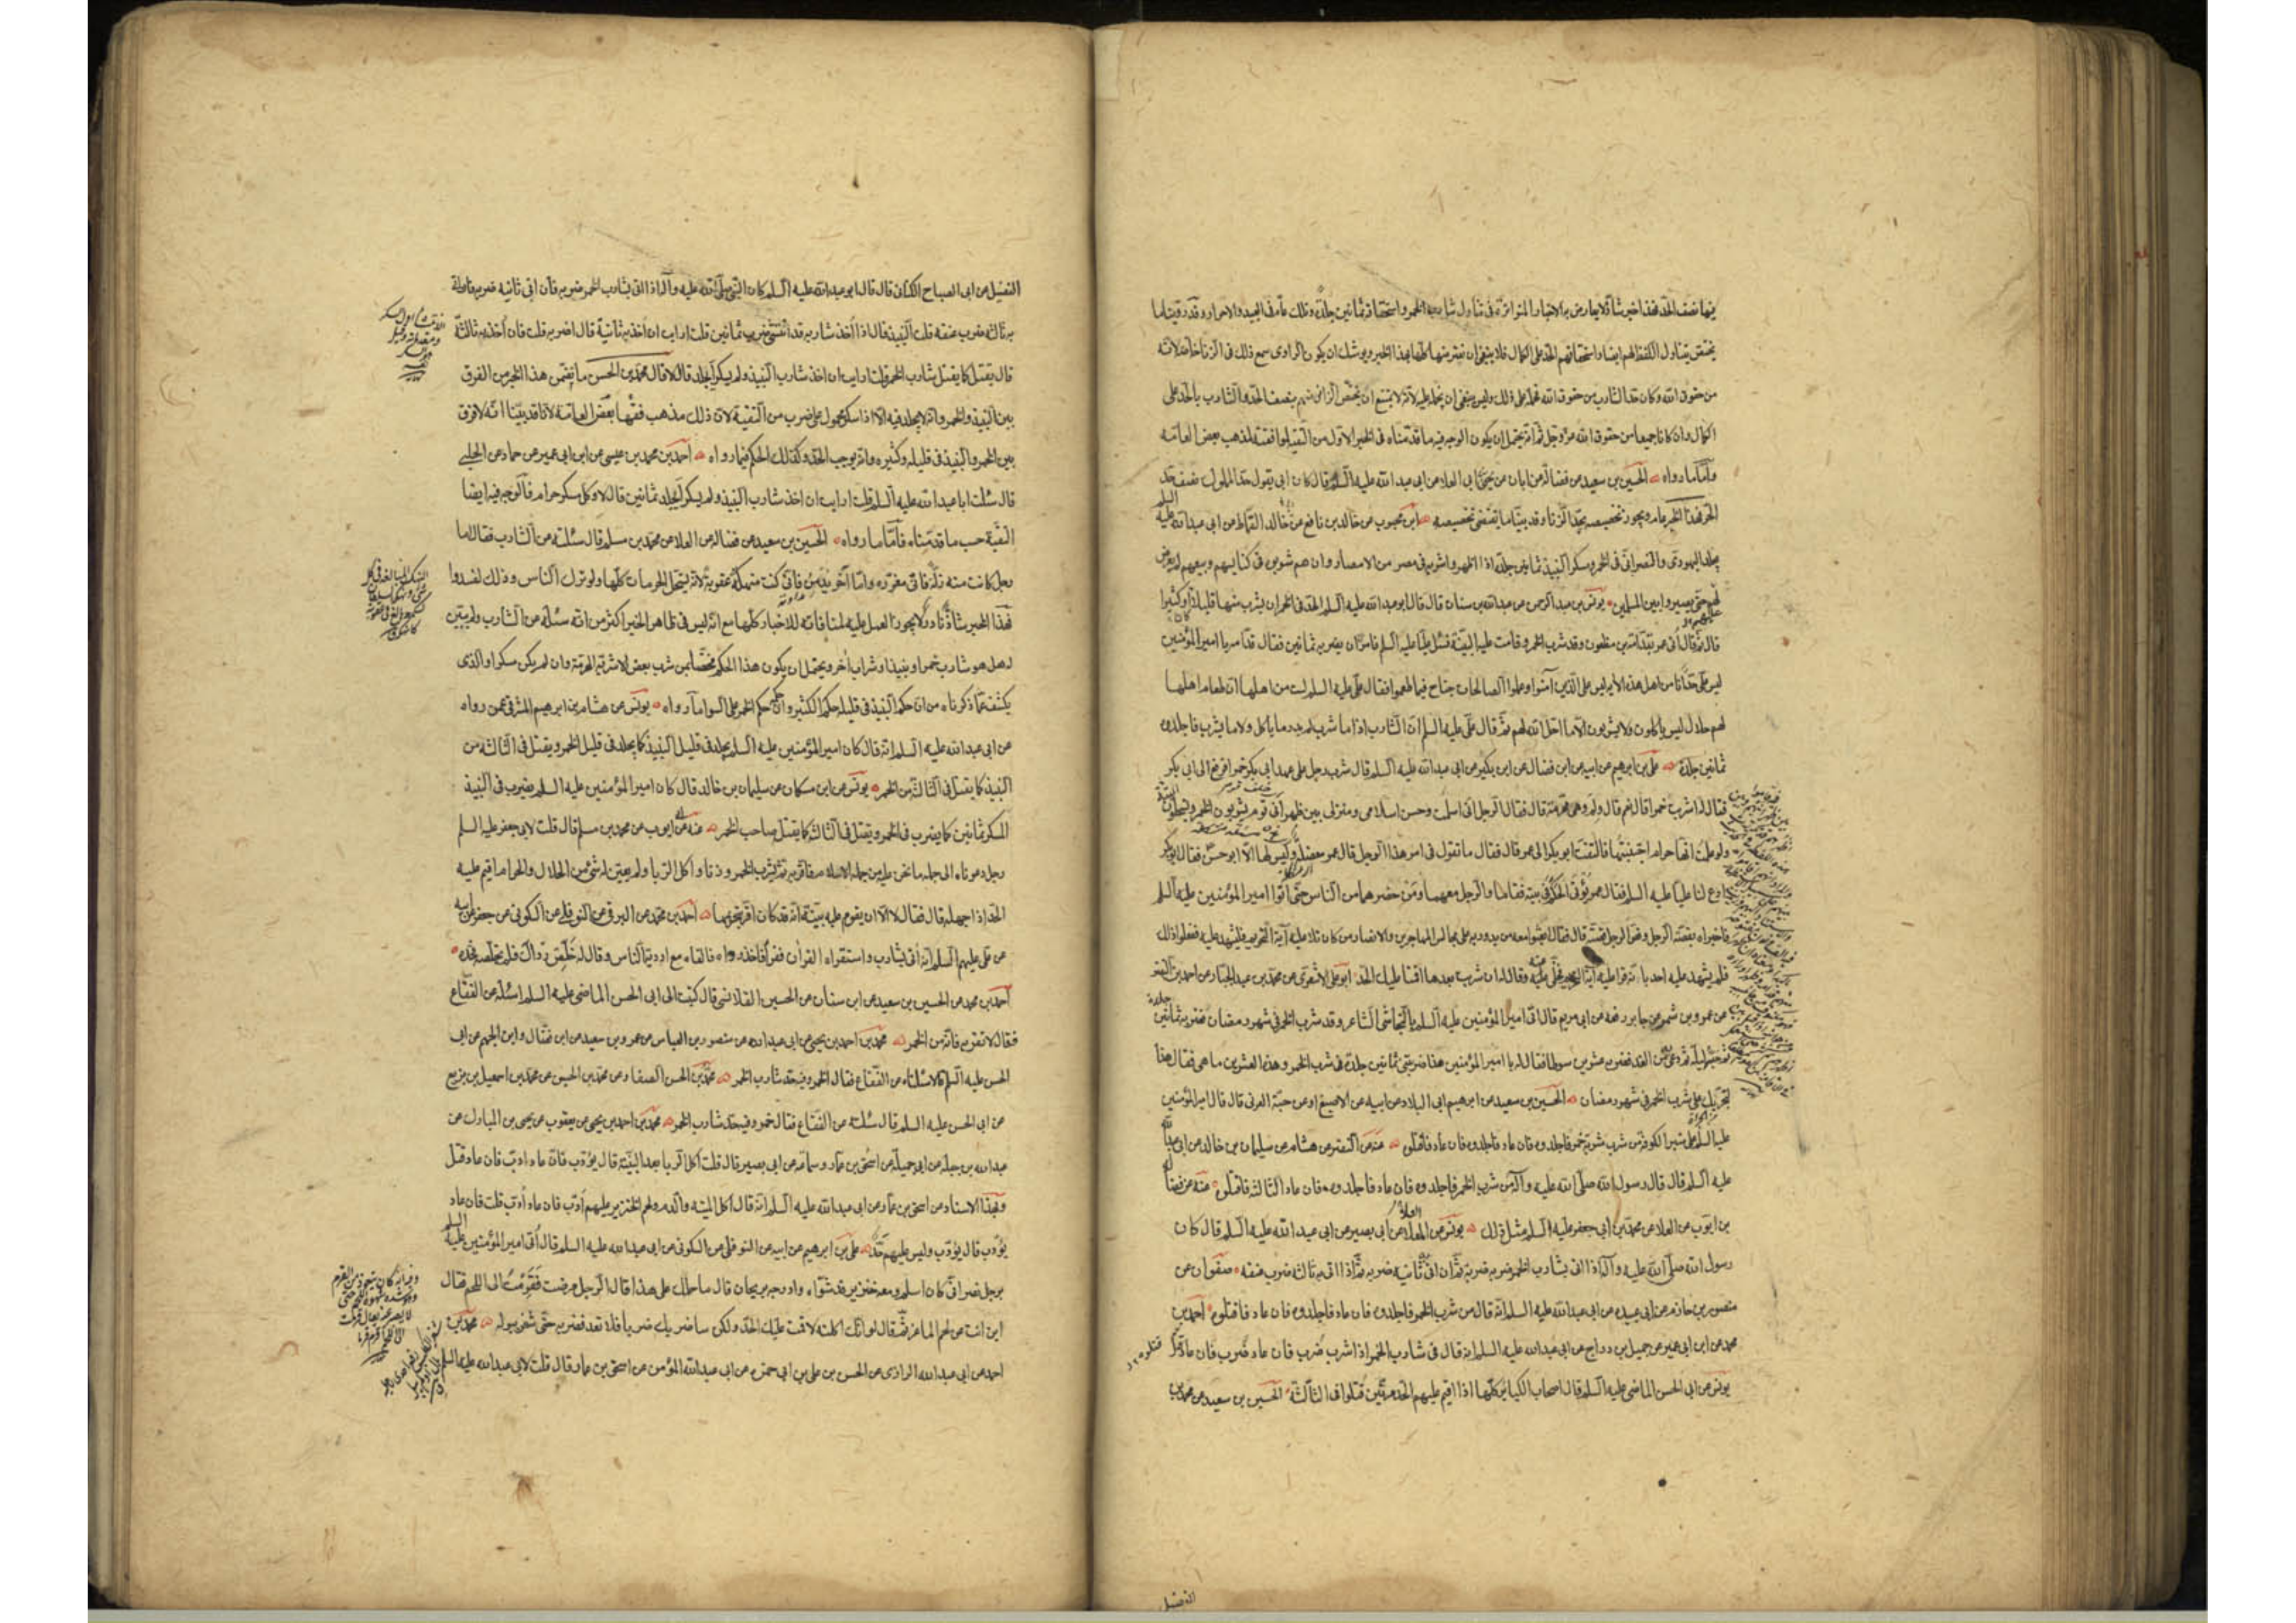 فيها نصف الحد فهذا خبر شاذ لا يعارض به الاخبار المتواترة في تناول شارب الخمر واستحقاقه ثمانين جلدة وتلك عامة في العبيد والاحرار وقد روينا ما
يختص بتناول اللفظ لهم ايضا واستحقاقهم الحد على الكمال فلا ينبغي ان نعترضها كلها بهذا الخبر ويوشك ان يكون الراوي سمع ذلك في الزنا خاصة لانه
من حقوق الله وكان حد الشارب من حقوق الله فحمله على ذلك وليس ينبغي ان يحمل عليه لانه لا يمتنع ان يختص الزاني منهم بنصف الحد والشارب بالحد على
الكمال وان كانا جميعا من حقوق الله عز وجل ثم انه يحتمل ان يكون الوجه فيه ما قدمناه في الخبر الاول من التقية لموافقته لمذهب بعض العامة
وأما ما رواه الحسين بن سعيد عن فضالة عن ابان عن يحيى بن ابي العلا عن ابي عبد الله عليه السلم قال كان ابي يقول حد المملوك نصف حد
الحر فهذا الخبر عام ويجوز تخصيصه بحد الزنا وقد بينا ما يقتضي تخصيصه ابن محبوب عن خالد بن نافع عن خالد القماط عن ابي عبد الله عليه السلم
يجلد اليهودي والنصراني في الخمر ومسكر النبيذ ثمانين جلدة اذا اظهروا شربه في مصر من الامصار وان هم شربوه في كنايسهم وبيعهم لم يعرض
لهم حتى يصيروا بين المسلمين يونس بن عبد الرحمن عن عبد الله بن سنان قال قال ابو عبد الله عليه السلم الحد في الخمر ان يشرب منها قليلا او كثيرا
قال ثم قال أتي عمر بقدامة بن مظعون وقد شرب الخمر وقامت عليه البينة فسئل عليا عليه السلم فامره ان يضربه ثمانين فقال قدامة يا امير المؤمنين
ليس علي حد انا من اهل هذه الآية ليس على الذين آمنوا وعملوا الصالحات جناح فيما طعموا فقال علي عليه السلم لست من اهلها ان طعام اهلها
لهم حلال ليس ياكلون ولا يشربون الا ما احل الله لهم ثم قال علي عليه السلم ان الشارب اذا ما شرب لم يدر ما ياكل ولا ما يشرب فاجلدوه
ثمانين جلدة علي بن ابرهيم عن ابيه عن ابن فضال عن ابن بكير عن ابي عبد الله عليه السلم قال شرب رجل على عهد ابي بكر خمرا فرفع الى ابي بكر
فقال له اشربت خمرا قال نعم قال ولم وهي محرمة قال فقال الرجل اني اسلمت وحسن اسلامي ومنزلي بين ظهراني قوم يشربون الخمر ويستحلون
ولو علمت انها حرام اجتنبتها فالتفت ابو بكر الى عمر قال فقال ما تقول في امر هذا الرجل قال عمر معضلة وليس لها الا ابو حسن فقال ابو بكر
ادع لنا عليا عليه السلم فقال عمر يؤتى الحكم في بيته فقاما والرجل معهما ومن حضرهما من الناس حتى أتوا امير المؤمنين عليه السلم
فاخبراه بقصة الرجل وقص الرجل قصته قال فقال ابعثوا معه من يدور به على مجالس المهاجرين والانصار من كان تلا عليه آية التحريم فليشهد عليه ففعلوا ذلك
فلم يشهد عليه احد بانه قرا عليه آية التحريم فخلى عنه وقال له ان شربت بعدها اقمنا عليك الحد ابو علي الاشعري عن محمد بن عبد الجبار عن احمد بن النضر
عن عمرو بن شمر عن جابر رفعه عن ابي مريم قال اتي امير المؤمنين عليه السلم بالنجاشي الشاعر وقد شرب الخمر في شهر رمضان فضربه ثمانين جلدة
ثم حبسه ليلة ثم دعى به من الغد فضربه عشرين سوطا فقال له يا امير المؤمنين هذا ضربتني ثمانين جلدة في شرب الخمر وهذه العشرين ما هي فقال هذا
لتجريك على شرب الخمر في شهر رمضان الحسين بن سعيد عن ابرهيم بن ابي البلاد عن ابيه عن الاصبغ او عن حبة العرني قال قال امير المؤمنين
عليه السلم على منبر الكوفة من شرب شربة خمر فاجلدوه فان عاد فاجلدوه فان عاد فاقتلوه عنه عن النضر عن هشام عن سليمان بن خالد عن ابي عبد الله
عليه السلم قال قال رسول الله صلى الله عليه وآله من شرب الخمر فاجلدوه فان عاد فاجلدوه فان عاد الثالثة فاقتلوه عنه عن فضالة
بن ايوب عن العلا عن محمد عن ابي جعفر عليه السلم مثل ذلك يونس عن المعلا عن ابي بصير عن ابي عبد الله عليه السلم قال كان
رسول الله صلى الله عليه وآله اذا اتي بشارب الخمر ضربه ثم ان اتي به ثانية ضربه ثم اذا اتي به ثالثة ضرب عنقه صفوان عن
منصور بن حازم عن ابي عبيدة عن ابي عبد الله عليه السلم انه قال من شرب الخمر فاجلدوه فان عاد فاجلدوه فان عاد فاقتلوه احمد بن
محمد عن ابن ابي عمير عن جميل بن دراج عن ابي عبد الله عليه السلم انه قال في شارب الخمر اذا شرب ضرب فان عاد ضرب فان عاد قتل
يونس عن ابي الحسن الماضي عليه السلم قال اصحاب الكبائر كلها اذا اقيم عليهم الحد مرتين قتلوا في الثالثة الحسين بن سعيد عن محمد بن
الفضيل
الفضيل عن ابي الصباح الكناني قال قال ابو عبد الله عليه السلم كان النبي صلى الله عليه وآله اذا اتي بشارب الخمر ضربه فان اتي ثانية ضربه فان اتي
به ثالثة ضرب عنقه قلت النبيذ قال اذا أخذ شاربه قد انتشى ضرب ثمانين قلت ارايت ان أخذ به ثانية قال اضربه قلت فان أخذ به ثالثة
قال يقتل كما يقتل شارب الخمر قلت ارايت ان اخذ شارب النبيذ ولم يسكر أيجلد قال لا قال محمد بن الحسن ما يتضمن هذا الخبر من الفرق
بين النبيذ والخمر وانه لا يجلد فيه الا اذا سكر محمول على ضرب من التقية لان ذلك مذهب فقهاء بعض العامة لانا قد بينا انه لا فرق
بين الخمر والنبيذ في قليله وكثيره وانه يوجب الحد وكذلك الحكم فيما رواه احمد بن محمد بن عيسى عن ابن ابي عمير عن حماد عن الحلبي
قال سئلت ابا عبد الله عليه السلم قلت ارايت ان اخذ شارب النبيذ ولم يسكر أيجلد ثمانين قال لا وكل مسكر حرام فالوجه فيه ايضا
التقية حسب ما قدمناه فأما ما رواه الحسين بن سعيد عن فضالة عن العلا عن محمد بن مسلم قال سئلته عن الشارب فقال اما
رجل كانت منه زلة فاني معزره واما آخر يدمن فاني كنت منهكه عقوبة لانه يستحل المحرمات كلها ولو ترك الناس وذلك لفسدوا
فهذا الخبر شاذ نادر ولا يجوز العمل عليه لمنافاته للاخبار كلها مع انه ليس في ظاهر الخبر اكثر من انه سئله عن الشارب ولم يبين
له هل هو شارب خمر او نبيذ او شراب أخر ويحتمل ان يكون هذا الحكم مختصا بمن شرب بعض الاشربة المحرمة وان لم يكن مسكرا والذي
يكشف عما ذكرناه من ان حكم النبيذ في قليله حكم الكثير وان حكمه حكم الخمر على السواء ما رواه يونس عن هشام بن ابرهيم المشرقي عمن رواه
عن ابي عبد الله عليه السلم انه قال كان امير المؤمنين عليه السلم يجلد في قليل النبيذ كما يجلد في قليل الخمر ويقتل في الثالثة من
النبيذ كما يقتل في الثالثة من الخمر يونس عن ابن مسكان عن سليمان بن خالد قال كان امير المؤمنين عليه السلم يضرب في النبيذ
المسكر ثمانين كما يضرب في الخمر ويقتل في الثالثة كما يقتل صاحب الخمر عنه عن ابي ايوب عن محمد بن مسلم قال قلت لابي جعفر عليه السلم
رجل دعوناه الى جملة ما نحن عليه من جملة الاسلام فاقر به ثم شرب الخمر وزنا واكل الربا ولم يتبين له شئ من الحلال والحرام اقيم عليه
الحد اذا جهله قال فقال لا الا ان يقوم عليه بينة انه قد كان اقر بتحريمها احمد بن محمد عن البرقي عن النوفلي عن السكوني عن جعفر عن ابيه
عن علي عليهم السلم انه أتي بشارب واستقراه القرآن فقرأ فاخذ رداه فالقاه مع اردية الناس وقال له خلص رداك فلم يخلصه فحده
احمد بن محمد عن الحسين بن سعيد عن ابن سنان عن الحسين القلانسي قال كتبت الى ابي الحسن الماضي عليه السلم اسئله عن الفقاع
فقال لا تقربه فانه من الخمر محمد بن احمد بن يحيى عن ابي عبد الله عن منصور بن العباس عن عمرو بن سعيد عن ابن فضال وابن الجهم عن ابي
الحسن عليه السلم قالا سئلناه عن الفقاع فقال الخمر وفيه حد شارب الخمر محمد بن الحسن الصفار عن محمد بن الحسين عن محمد بن اسمعيل بن بزيع
عن ابي الحسن عليه السلم قال سئلته عن الفقاع فقال خمر وفيه حد شارب الخمر محمد بن احمد بن يحيى عن يعقوب عن يحيى بن المبارك عن
عبد الله بن جبلة عن ابي جميلة عن اسحق بن عمار وسماعة عن ابي بصير قال قلت اكل الربا بعد البينة قال يؤدب فان عاد ادب فان عاد قتل
وبهذا الاسناد عن اسحق بن عمار عن ابي عبد الله عليه السلم انه قال اكل الميتة والدم ولحم الخنزير عليهم أدب فان عاد أدب قلت فان عاد
يؤدب قال يؤدب وليس عليهم حد علي بن ابرهيم عن ابيه عن النوفلي عن السكوني عن ابي عبد الله عليه السلم قال أتي امير المؤمنين عليه السلم
برجل نصراني كان اسلم ومعه خنزير قد شواه وادرجه بريحان قال ما حملك على هذا قال الرجل مرضت فقرمت الى اللحم فقال
اين انت من لحم الماعز ثم قال لو انك اكلته لاقمت عليك الحد ولكن ساضربك ضربا فلا تعد فضربه حتى شغر ببوله محمد بن
احمد عن ابي عبد الله الرازي عن الحسن بن علي بن ابي حمزة عن ابي عبد الله المؤمن عن اسحق بن عمار قال قلت لابي عبد الله عليه السلم